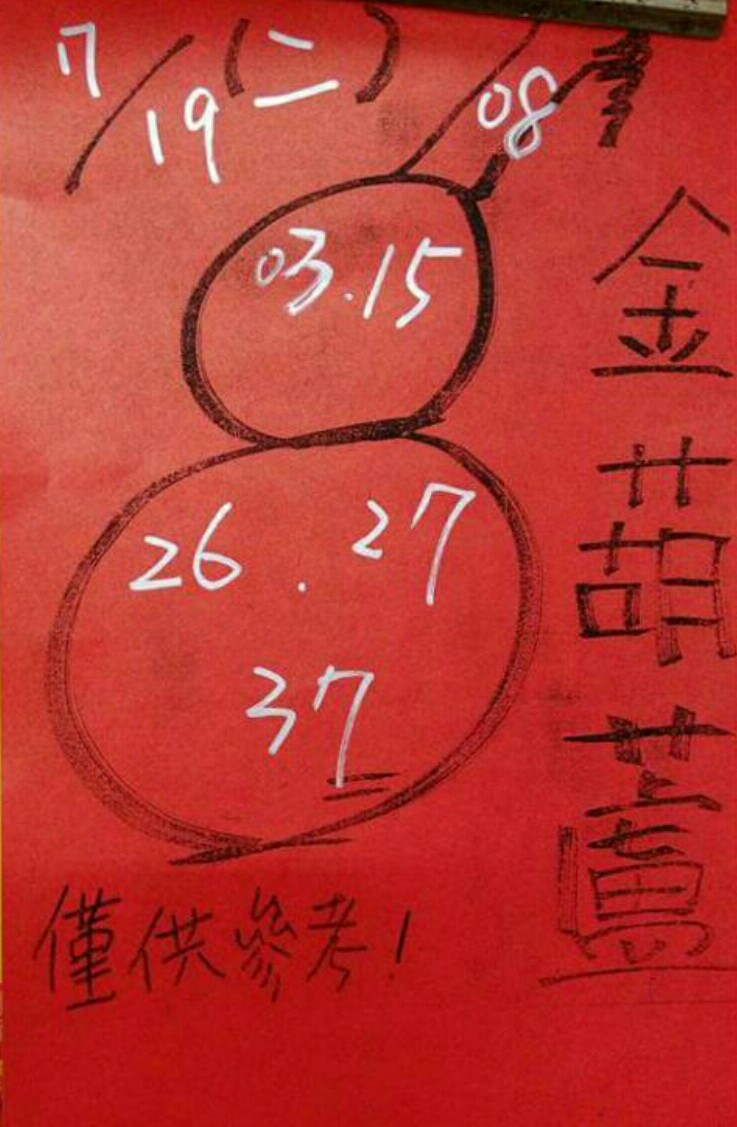 7/19(二)
08
03.15
26.27
37
金葫蘆
僅供參考!